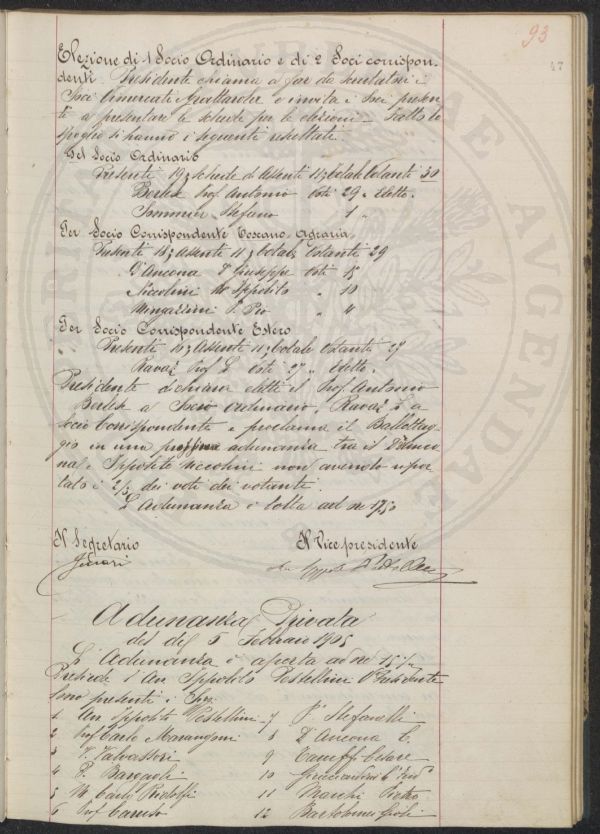 93
47
Elezione di 1 Socio Ordinario e di 2 Soci corrispon-
denti. Presidente chiama a far da scrutatori i
Soci e invita i Soci presen-
ti a presentare le schede per le elezioni - Fatto lo
spoglio si hanno i seguenti resultati
Pel Socio Ordinario
Presenti 19; schede di Assenti 11; totale Votanti 30
Berlese Prof. Antonio Voti 29 - Eletto.
Sommier Stefano " 1 "
Per Socio Corrispondente Toscano Agraria
Presenti 18; Assenti 11; totale Votanti 29
D'Ancona Giuseppe Voti 15
Niccolini Ippolito " 10
Mingazzini P. Pio " 4
Per Socio Corrispondente Estero
Presenti 16; Assenti 11; totale Votanti 27
Ravaz Prof. L. Voti 27 " eletto.
Presidente dichiara eletti il Prof. Antonio
Berlese a Socio ordinario, Ravaz L. a
Socio Corrispondente e proclama il Ballottag-
gio in una prossima adunanza tra il D'Anco-
na e Ippolito Niccolini non avendo ripor-
tato i 2/3 dei voti dei votanti.
L'Adunanza è tolta ad ore 17,50
Il Segretario Il Vice presidente
Adunanza Privata
del dì 5 Febbraio 1905
L'Adunanza è aperta ad ore 15 1/2
Presiede l'Avv. Ippolito Pestellini V. Presidente
Sono presenti i Sigg.
1 Avv. Ippolito Pestellini 7 P. Stefanelli
2 Prof. Carlo Marangoni 8 D'Ancona C.
3 V. Valvassori 9 Caneffi Cesare
4 P. Bargagli 10
5 M. Carlo Ridolfi 11 Marchi Pietro
6 Prof. Caruso 12 Bartolomei Gioli